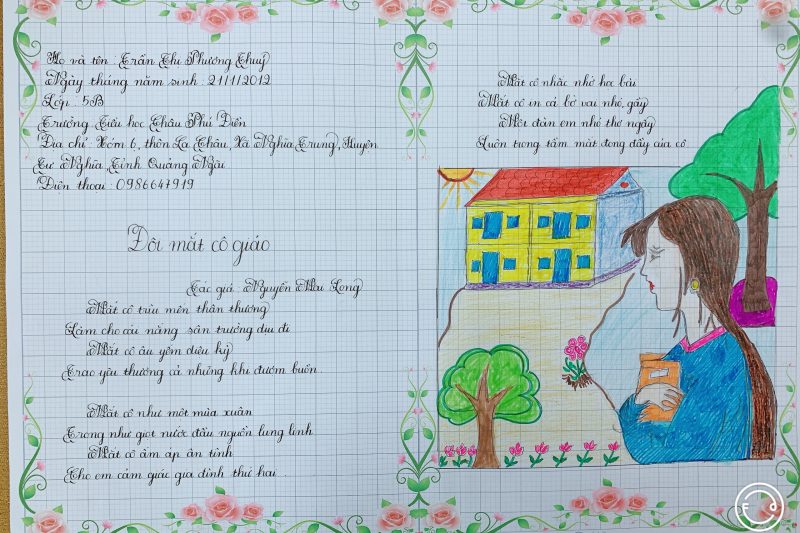 Họ và tên : Trần Thị Phương Thuỳ
Ngày tháng năm sinh : 21/11/2012
Lớp : 5B
Trường Tiểu học Châu Phú Điền
Địa chỉ : Xóm 6, thôn La Châu, Xã Nghĩa Trung, Huyện
Tư Nghĩa, Tỉnh Quảng Ngãi
Điện thoại : 0986647919
Đôi mắt cô giáo
Tác giả : Nguyễn Mai Long
Mắt cô trìu mến thân thương
Làm cho cái nắng sân trường dịu đi
Mắt cô âu yếm diệu kỳ
Trao yêu thương cả những khi đượm buồn.
Mắt cô như một mùa xuân
Trong như giọt nước đầu nguồn lung linh
Mắt cô ấm áp ân tình
Cho em cảm giác gia đình thứ hai
Mắt cô nhắc nhở học bài
Mắt cô in cả bờ vai nhỏ, gầy
Một đàn em nhỏ thơ ngây
Luôn trong tầm mắt đong đầy của cô.